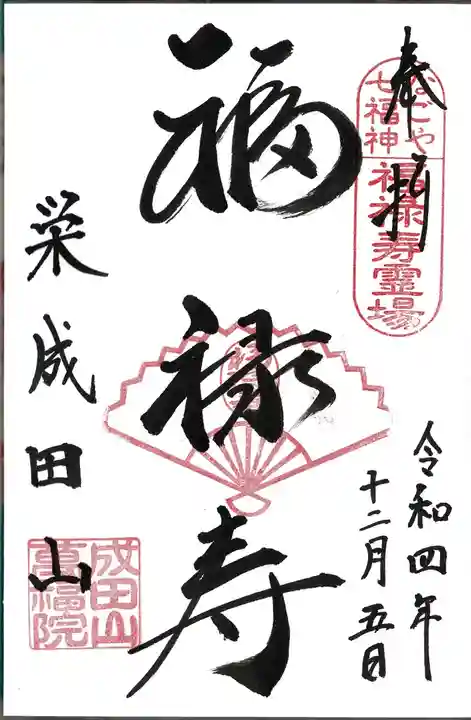 奉拝
なごや
七福神
福禄寿霊場
令和四年
十二月五日
福禄寿
栄成田山
成田山
萬福院